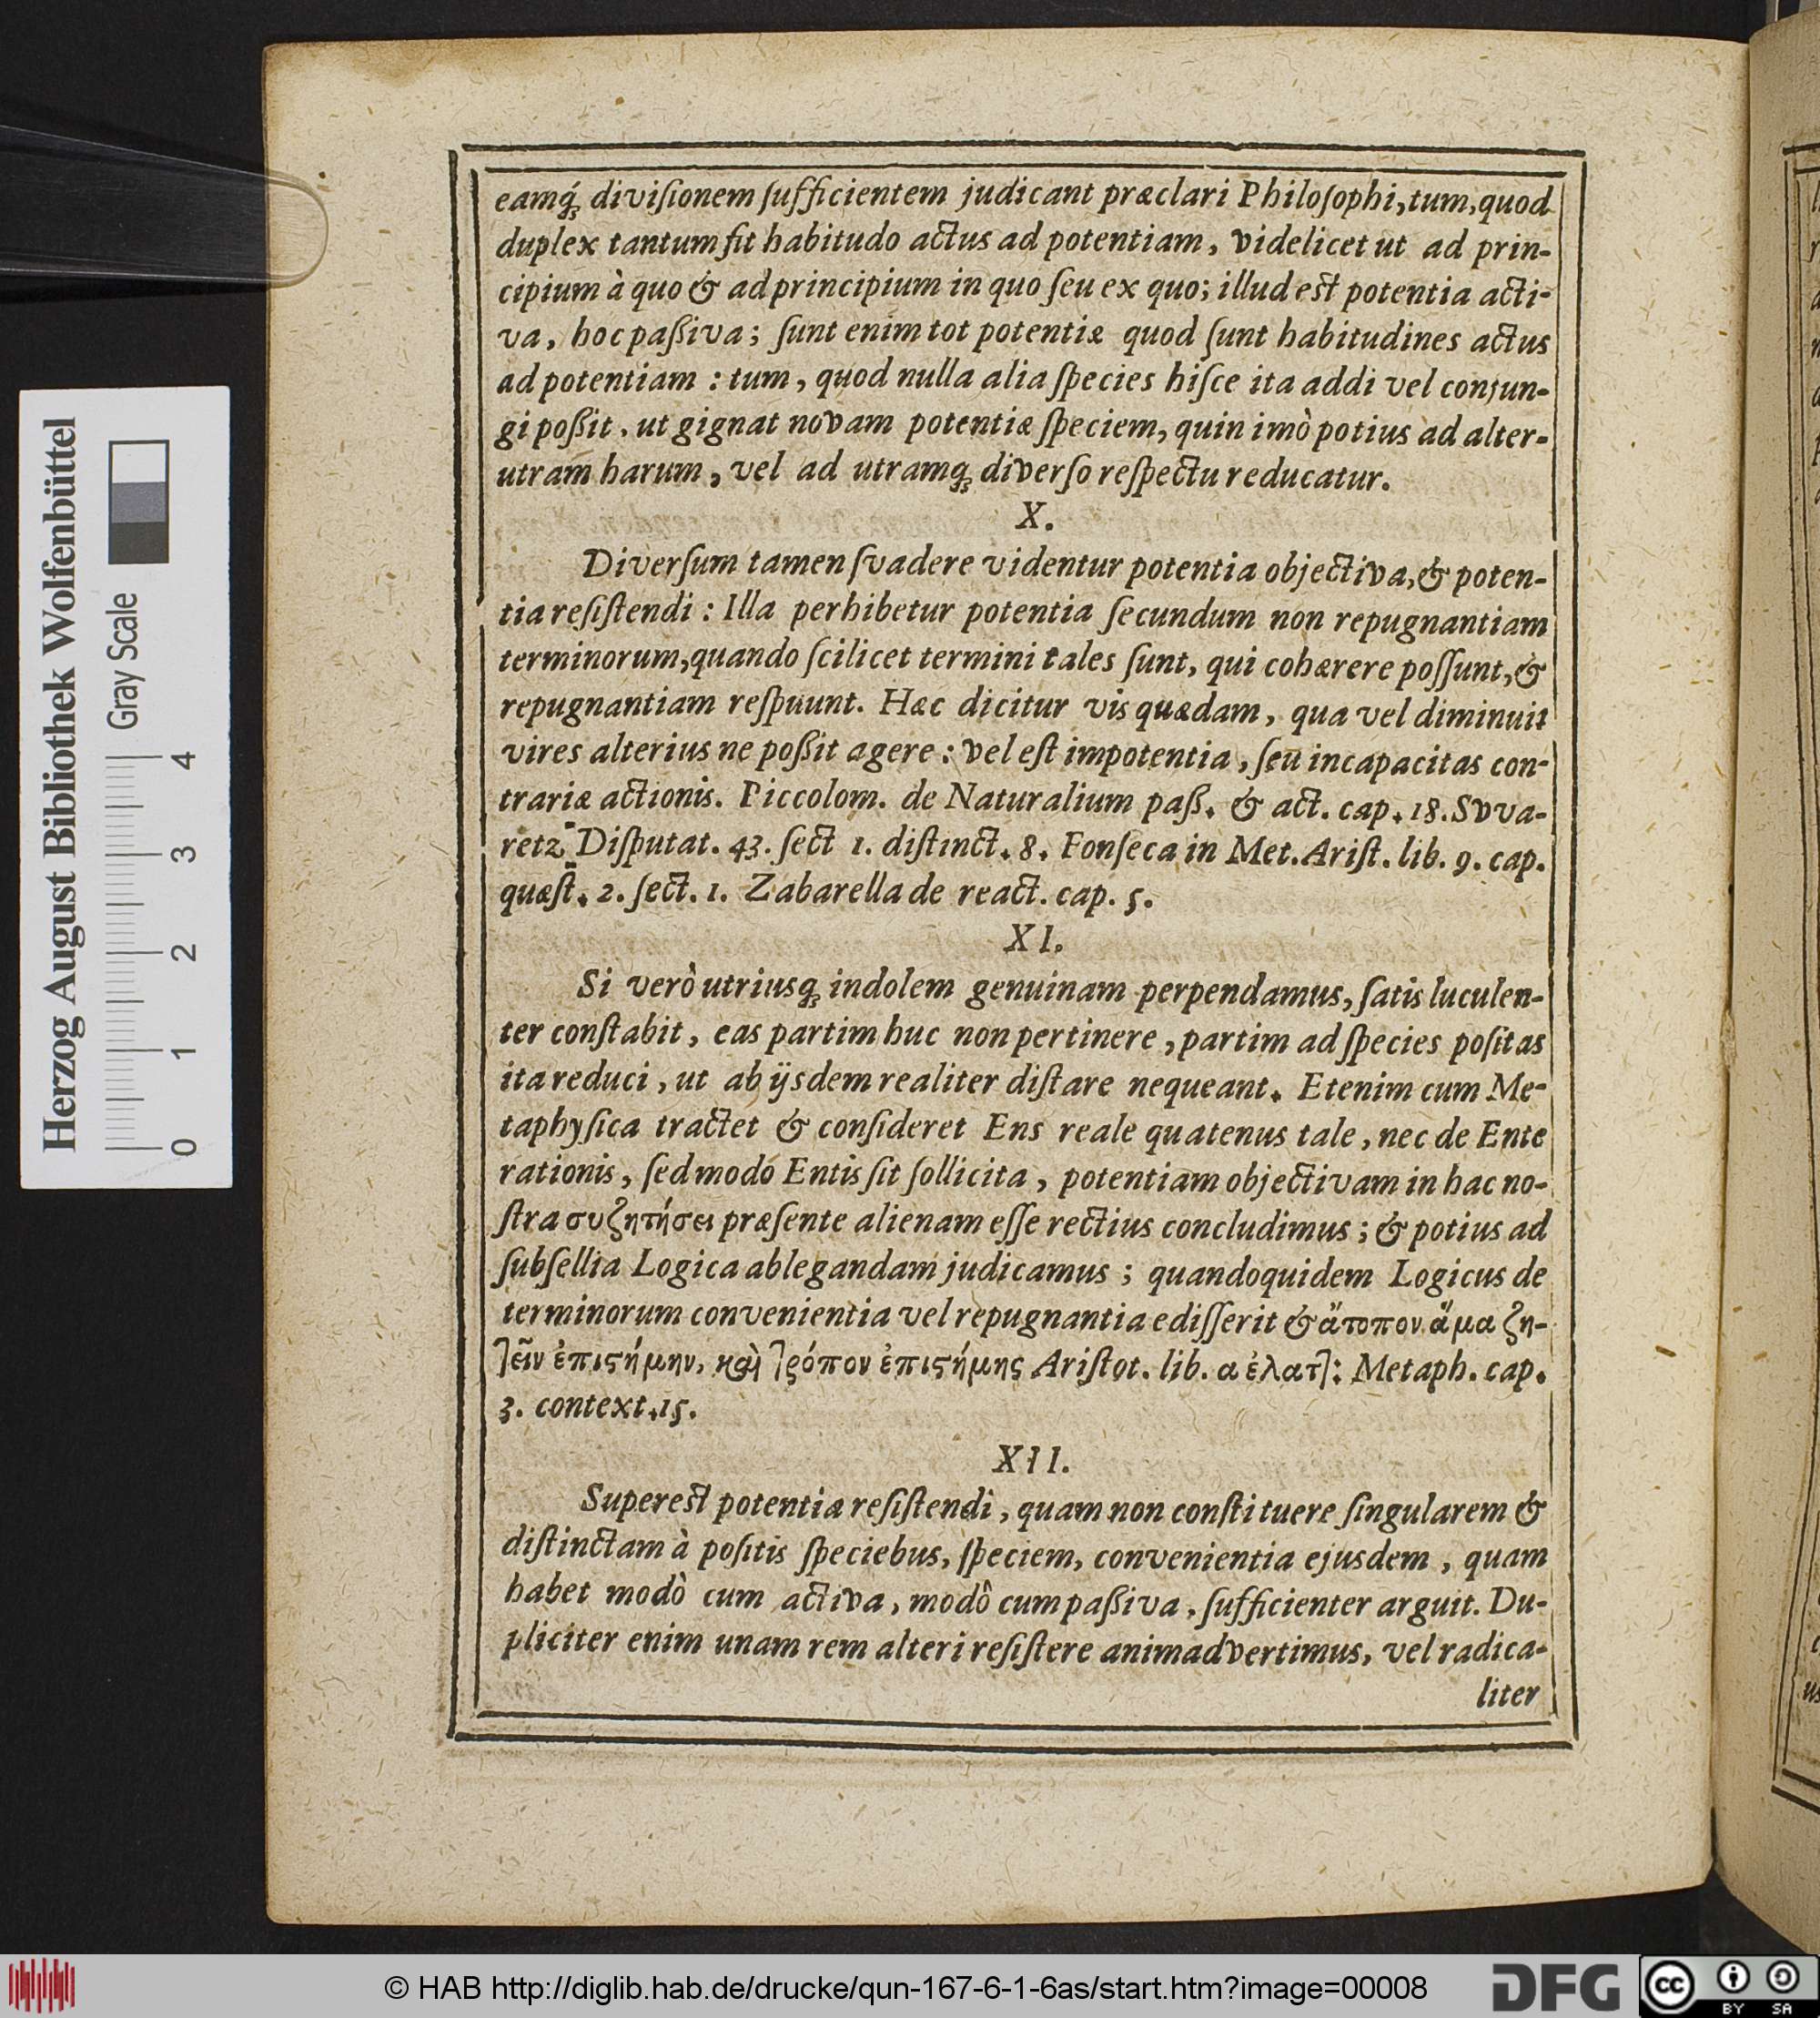 eamq́ꝫ diviſionem ſufficientem judicant præclari Philoſophi, tum, quod
duplex tantum ſit habitudo actus ad potentiam, videlicet ut ad prin-
cipium à quo & ad principium in quo ſeu ex quo; illud eſt potentia acti-
va, hoc paßiva; ſunt enim tot potentiæ quod ſunt habitudines actus
ad potentiam: tum, quod nulla alia ſpecies hiſce ita addi vel conjun-
gi poßit, ut gignat novam potentiæ ſpeciem, quin imò potius ad alter-
utram harum, vel ad utramqꝫ diverſo reſpectu reducatur.
X.
Diverſum tamen ſvadere videntur potentia objectiva, & poten-
tia reſiſtendi: Illa perhibetur potentia ſecundum non repugnantiam
terminorum, quando ſcilicet termini tales ſunt, qui cohærere poſſunt, &
repugnantiam reſpuunt. Hæc dicitur vis quædam, qua vel diminuit
vires alterius ne poßit agere: vel eſt impotentia, ſeu incapacitas con-
trariæ actionis. Piccolom. de Naturalium paß. & act. cap. 18. Svva-
retz. Diſputat. 43. ſect 1. diſtinct. 8. Fonſeca in Met. Ariſt. lib. 9. cap.
quæſt. 2. ſect. 1. Zabarella de react. cap. 5.
XI.
Si verò utriusqꝫ indolem genuinam perpendamus, ſatis luculen-
ter conſtabit, eas partim huc non pertinere, partim ad ſpecies poſitas
ita reduci, ut ab ijsdem realiter diſtare nequeant. Etenim cum Me-
taphyſica tractet & conſideret Ens reale quatenus tale, nec de Ente
rationis, ſed modo Entis ſit ſollicita, potentiam objectivam in hac no-
ſtra συζητήσει præſente alienam eſſe rectius concludimus; & potius ad
ſubſellia Logica ablegandam judicamus; quandoquidem Logicus de
terminorum convenientia vel repugnantia ediſſerit & ἄτοπον ἅμα ζη-
τεῖν ἐπιϛήμην, καὶ τρόπον ἐπιϛήμης Ariſtot. lib. α ἐλατ]: Metaph. cap.
3. context. 15.
XII.
Supereſt potentia reſiſtendi, quam non conſtituere ſingularem &
diſtinctam à poſitis ſpeciebus, ſpeciem, convenientia ejusdem, quam
habet modò cum activa, modò cum paßiva, ſufficienter arguit. Du-
pliciter enim unam rem alteri reſiſtere animadvertimus, vel radica-
liter
Herzog August Bibliothek Wolfenbüttel
Gray Scale
0 1 2 3 4
© HAB http://diglib.hab.de/drucke/qun-167-6-1-6as/start.htm?image=00008
DFG
cc BY SA